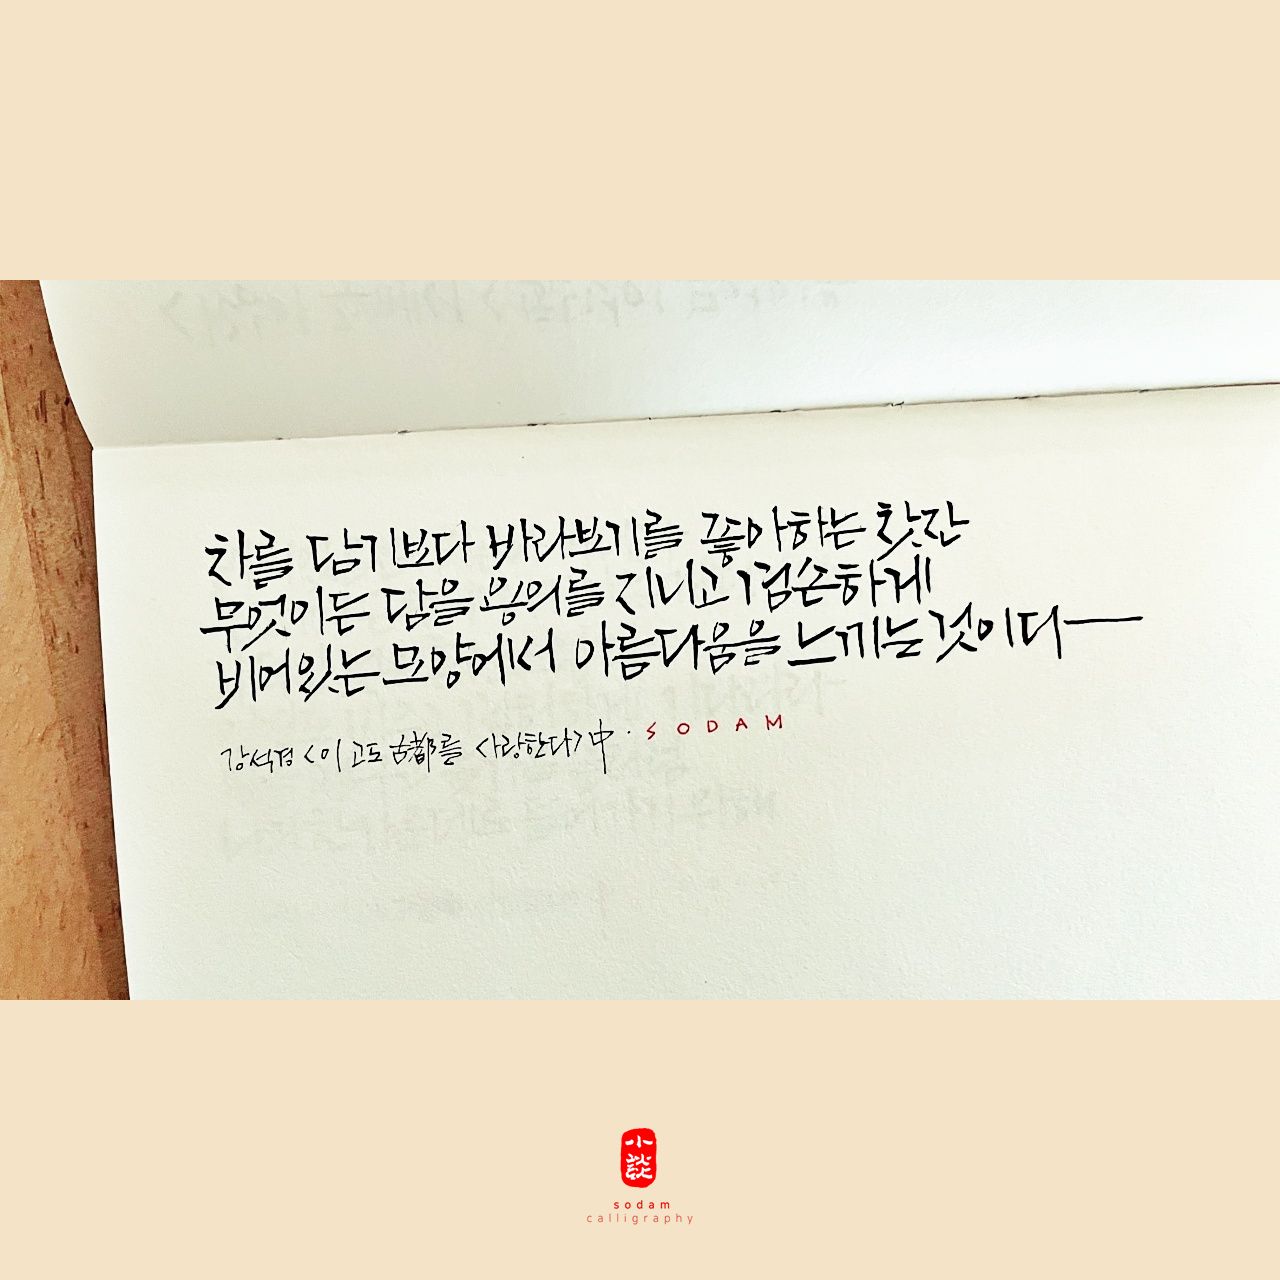 차를 담기보다 바라보기를 좋아하는 찻잔
무엇이든 담을 용의를 지니고 겸손하게
비어있는 모양에서 아름다움을 느끼는 것이다
강석경 <이 고도 古都를 사랑한다> 中 · SODAM
小談
sodam
calligraphy